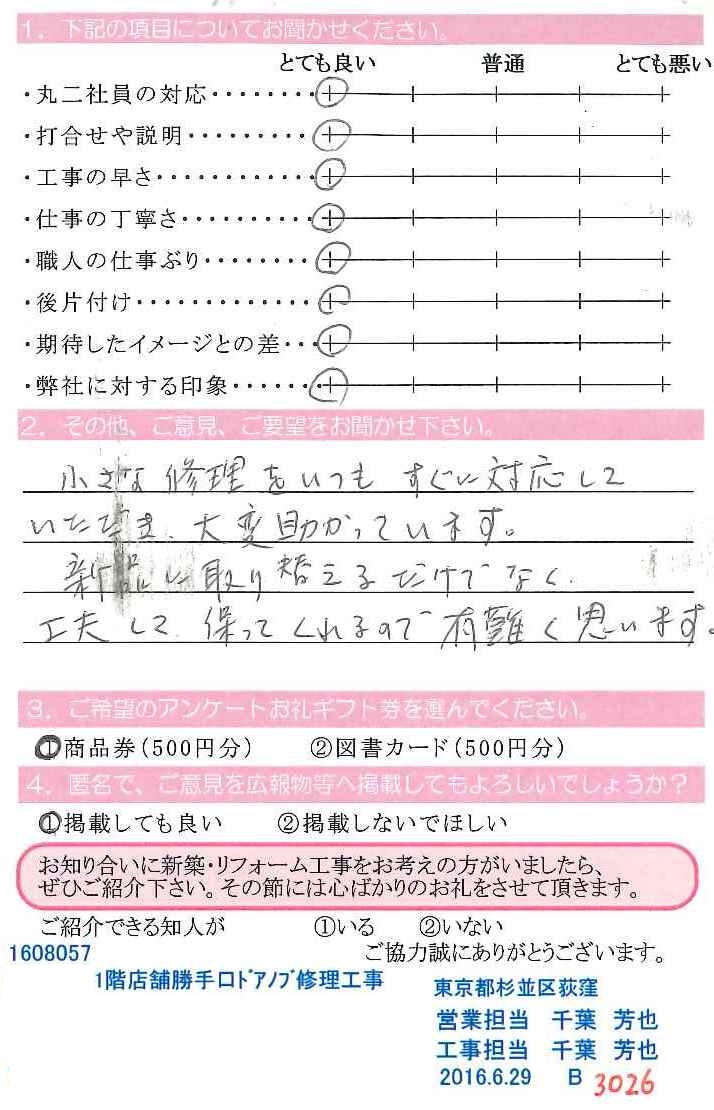 1．下記の項目についてお聞かせください。
とても良い 普通 とても悪い
・丸二社員の対応・・・・・・・・
・打合せや説明・・・・・・・・・
・工事の早さ・・・・・・・・・・・
・仕事の丁寧さ・・・・・・・・・
・職人の仕事ぶり・・・・・・・
・後片付け・・・・・・・・・・・・
・期待したイメージとの差・・・
・弊社に対する印象・・・・・・
2．その他、ご意見、ご要望をお聞かせ下さい。
小さな修理をいつもすぐに対応して
いただき、大変助かっています。
新品に取り替えるだけでなく、
工夫して、保ってくれるので有難く思います。
3．ご希望のアンケートお礼ギフト券を選んでください。
①商品券（500円分） ②図書カード（500円分）
4．匿名で、ご意見を広報物等へ掲載してもよろしいでしょうか？
①掲載しても良い ②掲載しないでほしい
お知り合いに新築・リフォーム工事をお考えの方がいましたら、
ぜひご紹介下さい。その節には心ばかりのお礼をさせて頂きます。
ご紹介できる知人が ①いる ②いない
1608057 ご協力誠にありがとうございます。
1階店舗勝手口ﾄﾞｱﾉﾌﾞ修理工事
東京都杉並区荻窪
営業担当 千葉 芳也
工事担当 千葉 芳也
2016.6.29 B 3026